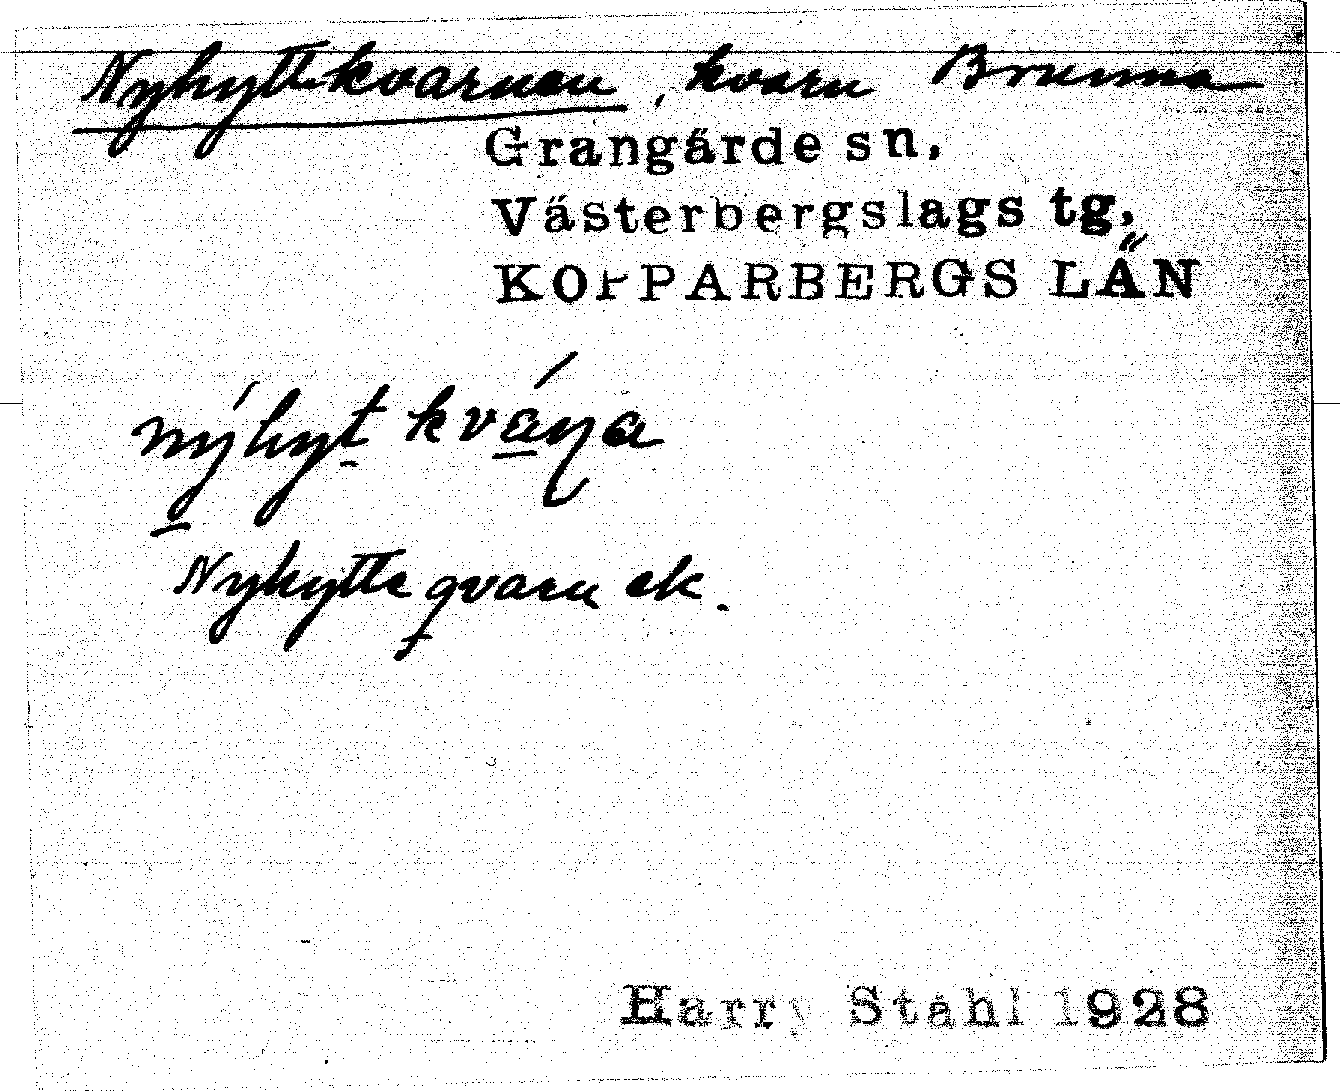 Nyhyttekvarnen, kvarn Brunna
Grangärde sn,
Västerbergslags tg,
KOPPARBERGS LÄN
nýhyt kváṇa
Nyhytte qvarn ek.
Harry Ståhl 1928